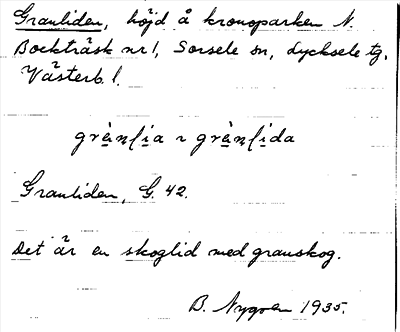 Granliden, höjd å kronoparken N.
Bockträsk nr 1, Sorsele sn, Lycksele tg,
Västerb. l.
grànlia ~ grànlida
Granliden, G. 42.
Det är en skoglid med granskog.
B. Nygren 1935.